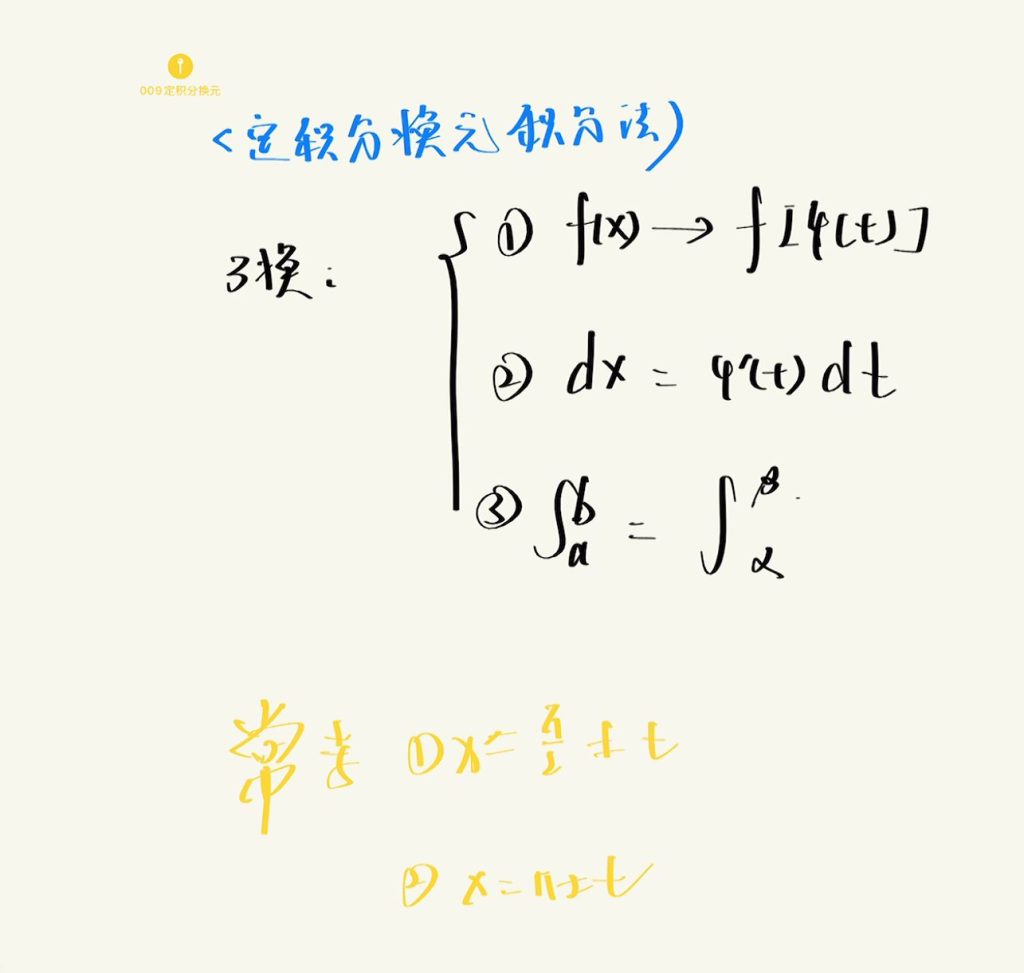 009定积分换元
<定积分换元积分法)
3换:
① f(x) → f[φ(t)]
② dx = φ'(t) dt
③ ∫ₐᵇ = ∫_α^β
常考 ① x = π/2 ± t
② x = π ± t